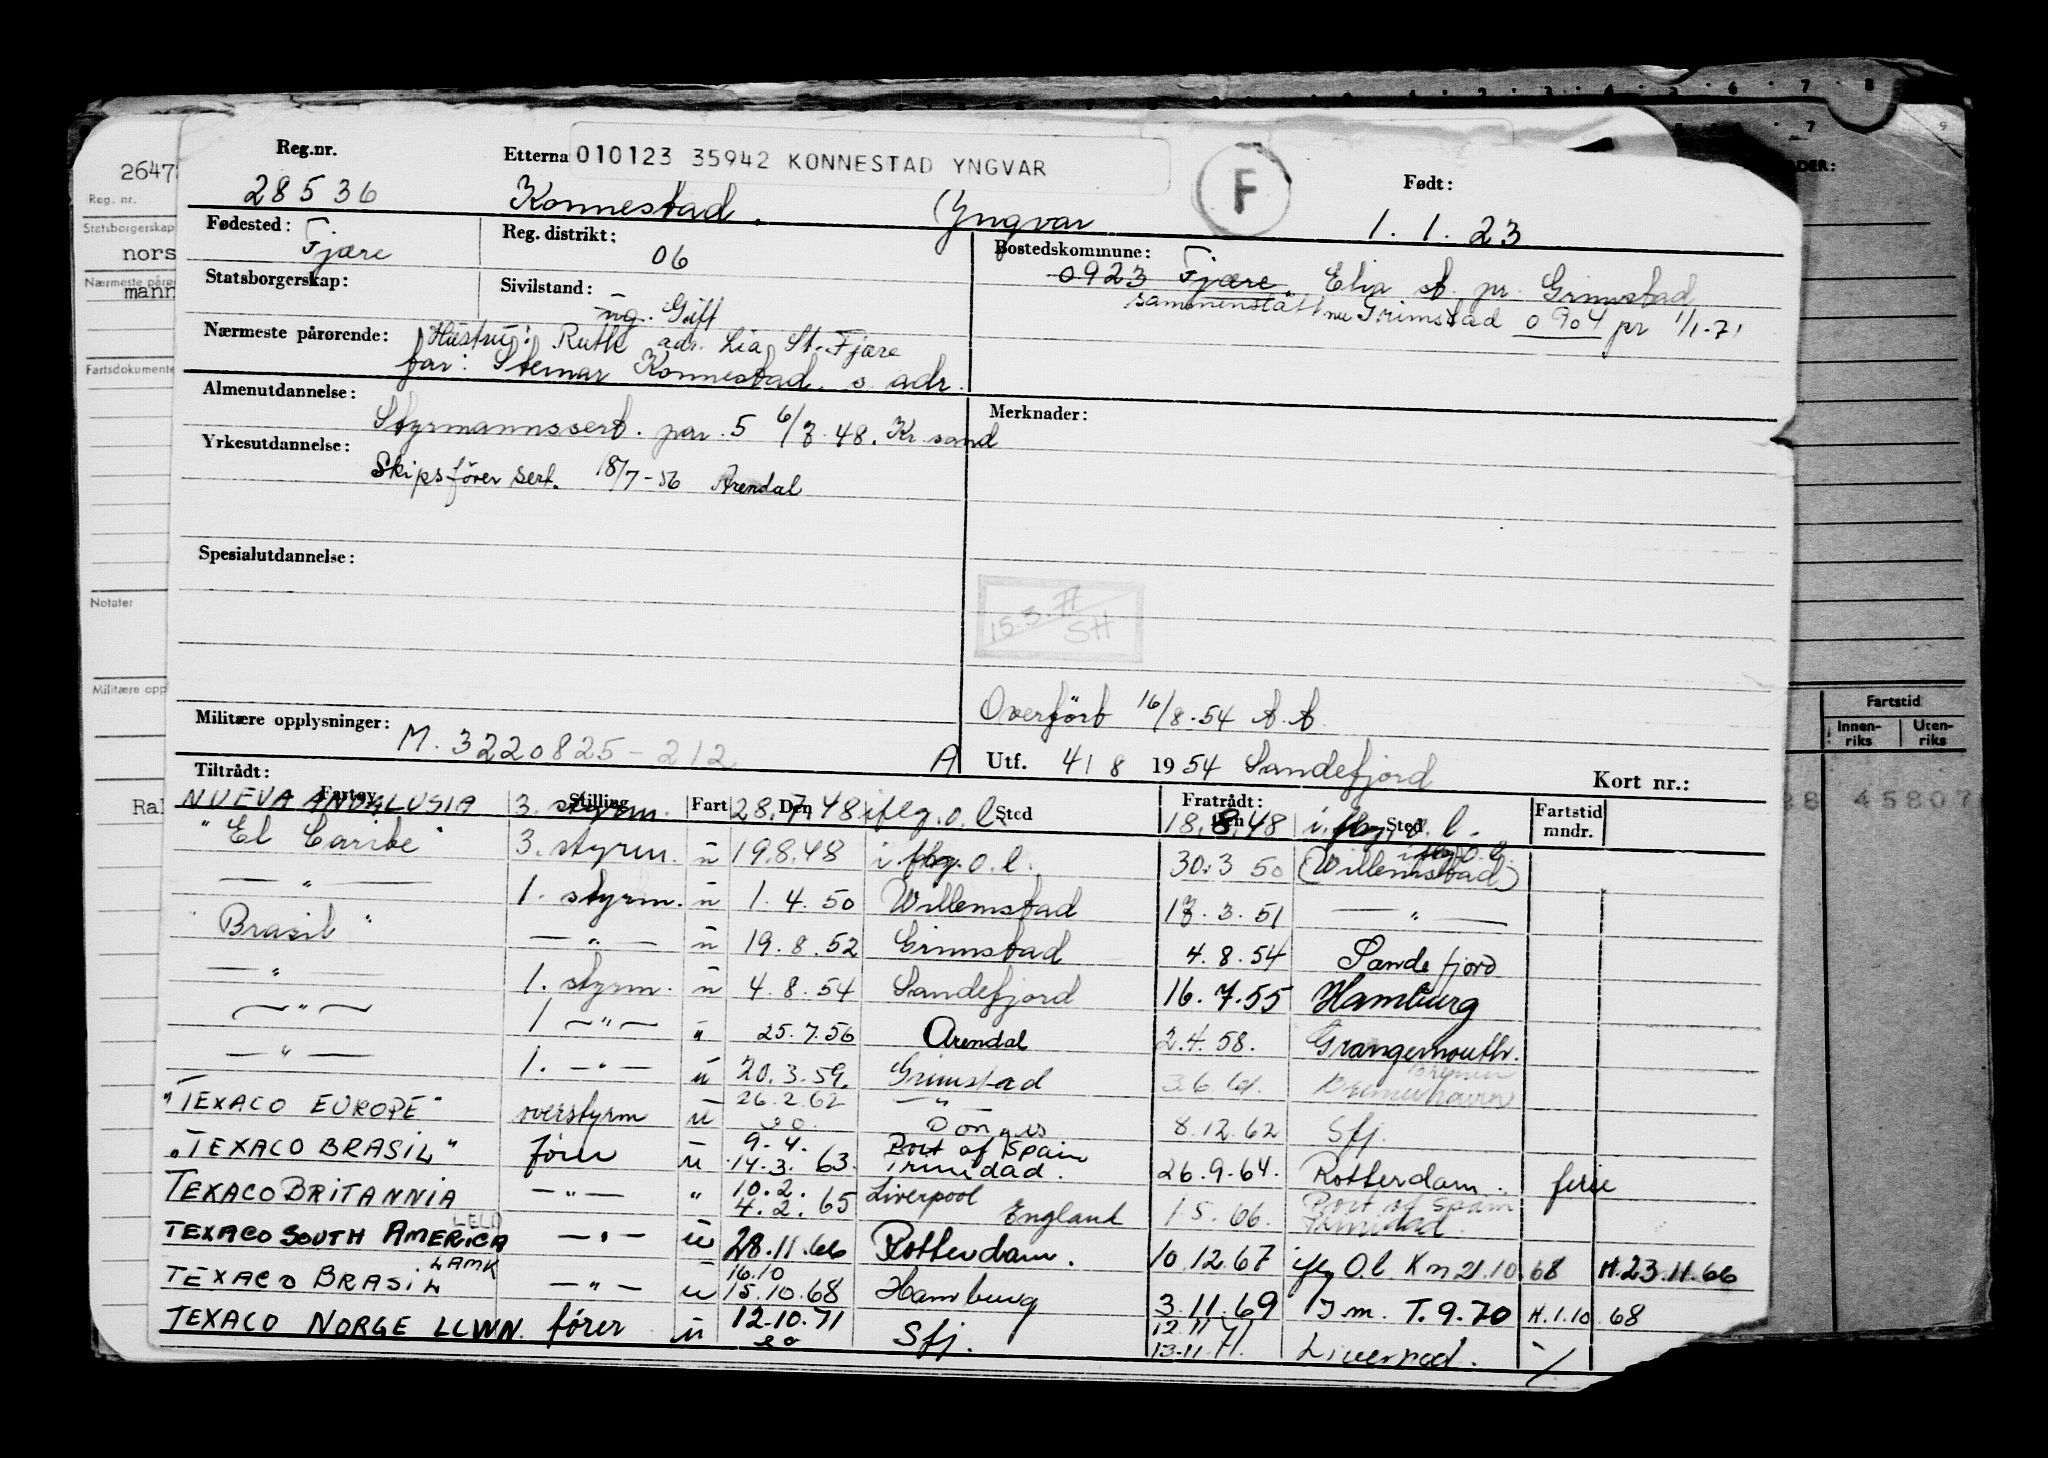 Reg.nr.
Etterna 010123 35942 KONNESTAD YNGVAR
F
Født:
28536 Konnestad. Yngvar 1. 1. 23
Fødested: Fjære
Reg. distrikt: 06
Bostedskommune: 0923 Fjære, st. pr. Grimstad
nu Grimstad 0904 pr 1/1-71
Statsborgerskap:
Sivilstand: ug. Gift
Nærmeste pårørende: Hustru: Ruth adr. Lia, St. Fjære
far: Steinar Konnestad. s. adr.
Almenutdannelse:
Merknader:
Styrmannssert. par. 5 Kr.sand
Yrkesutdannelse:
Skipsfører sert. 18/7-56 Arendal
Spesialutdannelse:
15.3.71
SH
Overført 16/8.54
Militære opplysninger: M. 3220825-212
A Utf. 4/8 1954 Sandefjord
Kort nr.:
Tiltrådt:
Fartøy Stilling Fart Den Sted
Fratrådt: Den Sted
Fartstid mndr.
NUEVA ANDALUSIA 3. styrm. 28.7.48 iflg. o. l. 18.8.48 i.flg. o. l.
"El Caribe" 3. styrm. u 19.8.48 i.flg. o. l. 30.3 50 (Willemstad) iflg o. l.
— " — 1. styrm. u 1. 4. 50 Willemstad 17. 3. 51 — " —
"Brasil" — " — u 19. 8. 52 Grimstad 4. 8. 54 Sandefjord
— " — 1. styrm. u 4. 8. 54 Sandefjord 16. 7. 55 Hamburg
— " — 1 — " — " 25.7.56 Arendal 2.4.58. Grangemouth.
— " — 1. — " — u 20. 3. 59. Grimstad 3.6.61. Bremerhaven
Bremen
"TEXACO EUROPE" overstyrm u 26.2.62 — " — 8.12.62 Sfj.
"TEXACO BRASIL" fører u 9.4. 14.3. 63. Port of Spain Trinidad. 26.9.64. Rotterdam. ferie
TEXACO BRITANNIA — " — " 10.2. 4.2. 65 Liverpool England 1.5.66. Port of Spain Trinidad.
TEXACO SOUTH AMERICA LELD — " — u 28.11.66 Rotterdam. 10.12.67 iflg O.l. K m 21.10.68 H.23.11.66
TEXACO BRASIL LAMK — " — u 16.10 15.10.68 Hamburg 3.11.69 I m. T. 9.70 H.1.10.68
TEXACO NORGE LCWN. fører u 12.10.71 Sfj. 12.11 13.11.71. Liverpool.
2647
Reg. nr.
Statsborgerskap
nors
Nærmeste påre
mann
Fartsdokumente
Notater
Militære oppl
Ral
DER:
Fartstid
Innen-riks Uten-riks
45807